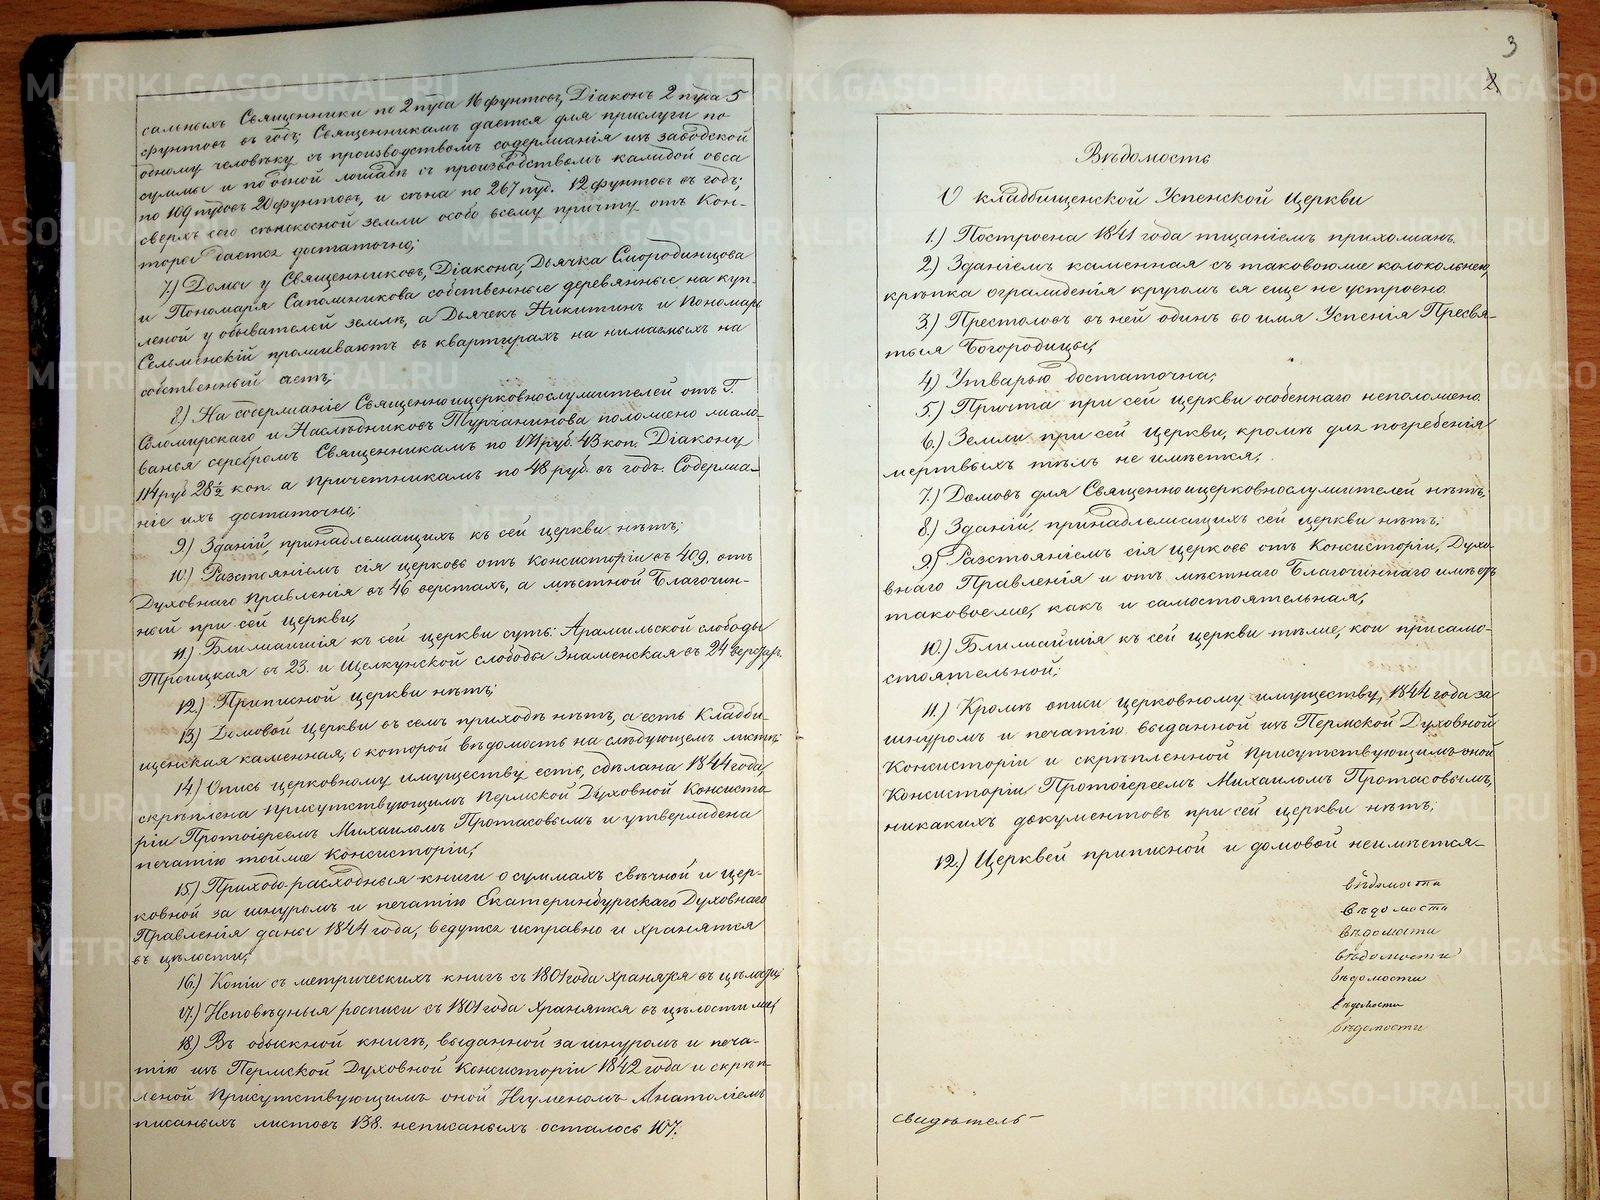 сальныхъ Священники по 2 пуда 16 фунтовъ, Діаконъ 2 пуда 5
фунтовъ въ годъ; Священникамъ дается для прислуги по
одному человѣку съ производствомъ содержанія изъ заводской
суммы и по одной лошадѣ съ производствомъ каждой овса
по 109 пудовъ 20 фунтовъ, и сѣна по 267 пуд. 12 фунтовъ въ годъ;
сверхъ сего сѣнокосной земли особо всему причту отъ Кон-
торы дается достаточно;
7.) Домы у Священниковъ, Діакона, Дьячка Смородинцова
и Пономаря Сапожникова собственные деревянные на куп-
леной у обывателей землѣ, а Дьячекъ Никитинъ и Пономарь
Сельменскій проживаютъ въ квартирахъ на нимаемыхъ на
собственный счетъ;
8.) На содержаніе Священноицерковнослужителей отъ Г.
Соломирскаго и Наслѣдниковъ Турчанинова положено жало-
ванья серебромъ Священникамъ по 171 руб. 43 коп. Діакону
114 руб 28½ коп. а причетникамъ по 48 руб. въ годъ. Содержа-
ніе ихъ достаточно;
9.) Зданій, принадлежащихъ къ сей церкви нѣтъ;
10.) Разстояніемъ сія церковь отъ Консисторіи въ 409, отъ
Духовнаго Правленія въ 46 верстахъ, а мѣстной Благочин-
ный при сей церкви;
11.) Ближайшія къ сей церкви суть: Арамильской слободы
Троицкая въ 23. и Щелкунской слободы Знаменская въ 24 верстах.
12.) Приписной церкви нѣтъ;
13.) Домовой церкви въ семъ приходѣ нѣтъ, а есть Кладби-
щенская каменная, о которой вѣдомость на слѣдующемъ листѣ;
14.) Опись церковному имуществу есть, сдѣлана 1844 года,
скрѣплена присутствующимъ Пермской Духовной Консисто-
ріи Протоіереемъ Михаиломъ Протасовымъ и утверждена
печатію тойже Консисторіи;
15.) Приходо-расходныя книги о суммахъ свѣчной и цер-
ковной за шнуромъ и печатію Екатеринбургскаго Духовнаго
Правленія даны 1844 года, ведутся исправно и хранятся
въ цѣлости;
16.) Копіи съ метрическихъ книгъ съ 1801 года хранятся въ цѣлости;
17.) Исповѣдныя росписи съ 1801 года хранятся въ цѣлости же;
18.) Въ обыскной книгѣ, выданной за шнуромъ и печа-
тію изъ Пермской Духовной Консисторіи 1842 года и скрѣп-
леной Присутствующимъ оной Игуменомъ Анатоліемъ
писаныхъ листовъ 138. неписаныхъ осталось 107.
3
2
Вѣдомость
О кладбищенской Успенской Церкви
1.) Построена 1841 года тщаніемъ прихожанъ.
2.) Зданіемъ каменная съ таковоюже колокольнею,
крѣпка огражденія кругомъ ея еще не устроено.
3.) Престоловъ въ ней одинъ во имя Успенія Пресвя-
тыя Богородицы;
4.) Утварью достаточна;
5.) Причта при сей церкви особеннаго неположено.
6.) Земли при сей церкви, кромѣ для погребенія
мертвыхъ тѣлъ не имѣется;
7.) Домовъ для Священноицерковнослужителей нѣтъ,
8.) Зданій, принадлежащихъ сей церкви нѣтъ;
9.) Разстояніемъ сія церковь отъ Консисторіи, Духо-
внаго Правленія и отъ мѣстнаго Благочиннаго имѣетъ
таковоеже, какъ и самостоятельная;
10.) Ближайшія къ сей церкви тѣже, кои присамо-
стоятельной;
11.) Кромѣ описи церковному имуществу, 1844 года за
шнуромъ и печатію выданной изъ Пермской Духовной
Консисторіи и скрѣпленной Присутствующимъ оной
Консисторіи Протоіереемъ Михаиломъ Протасовымъ,
никакихъ документовъ при сей церкви нѣтъ;
12.) Церквей приписной и домовой неимѣется.
вѣдомости
вѣдомости
вѣдомости
вѣдомости
вѣдомости
вѣдомости
вѣдомости
свидѣтель
METRIKI.GASO-URAL.RU